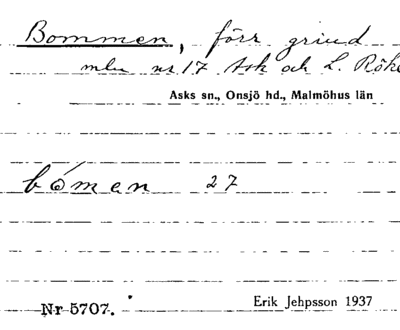 Bommen, förr grind
mln nr 17 Ask och L. Röke
Asks sn., Onsjö hd., Malmöhus län
bómen 27
Nr 5707.
Erik Jehpsson 1937